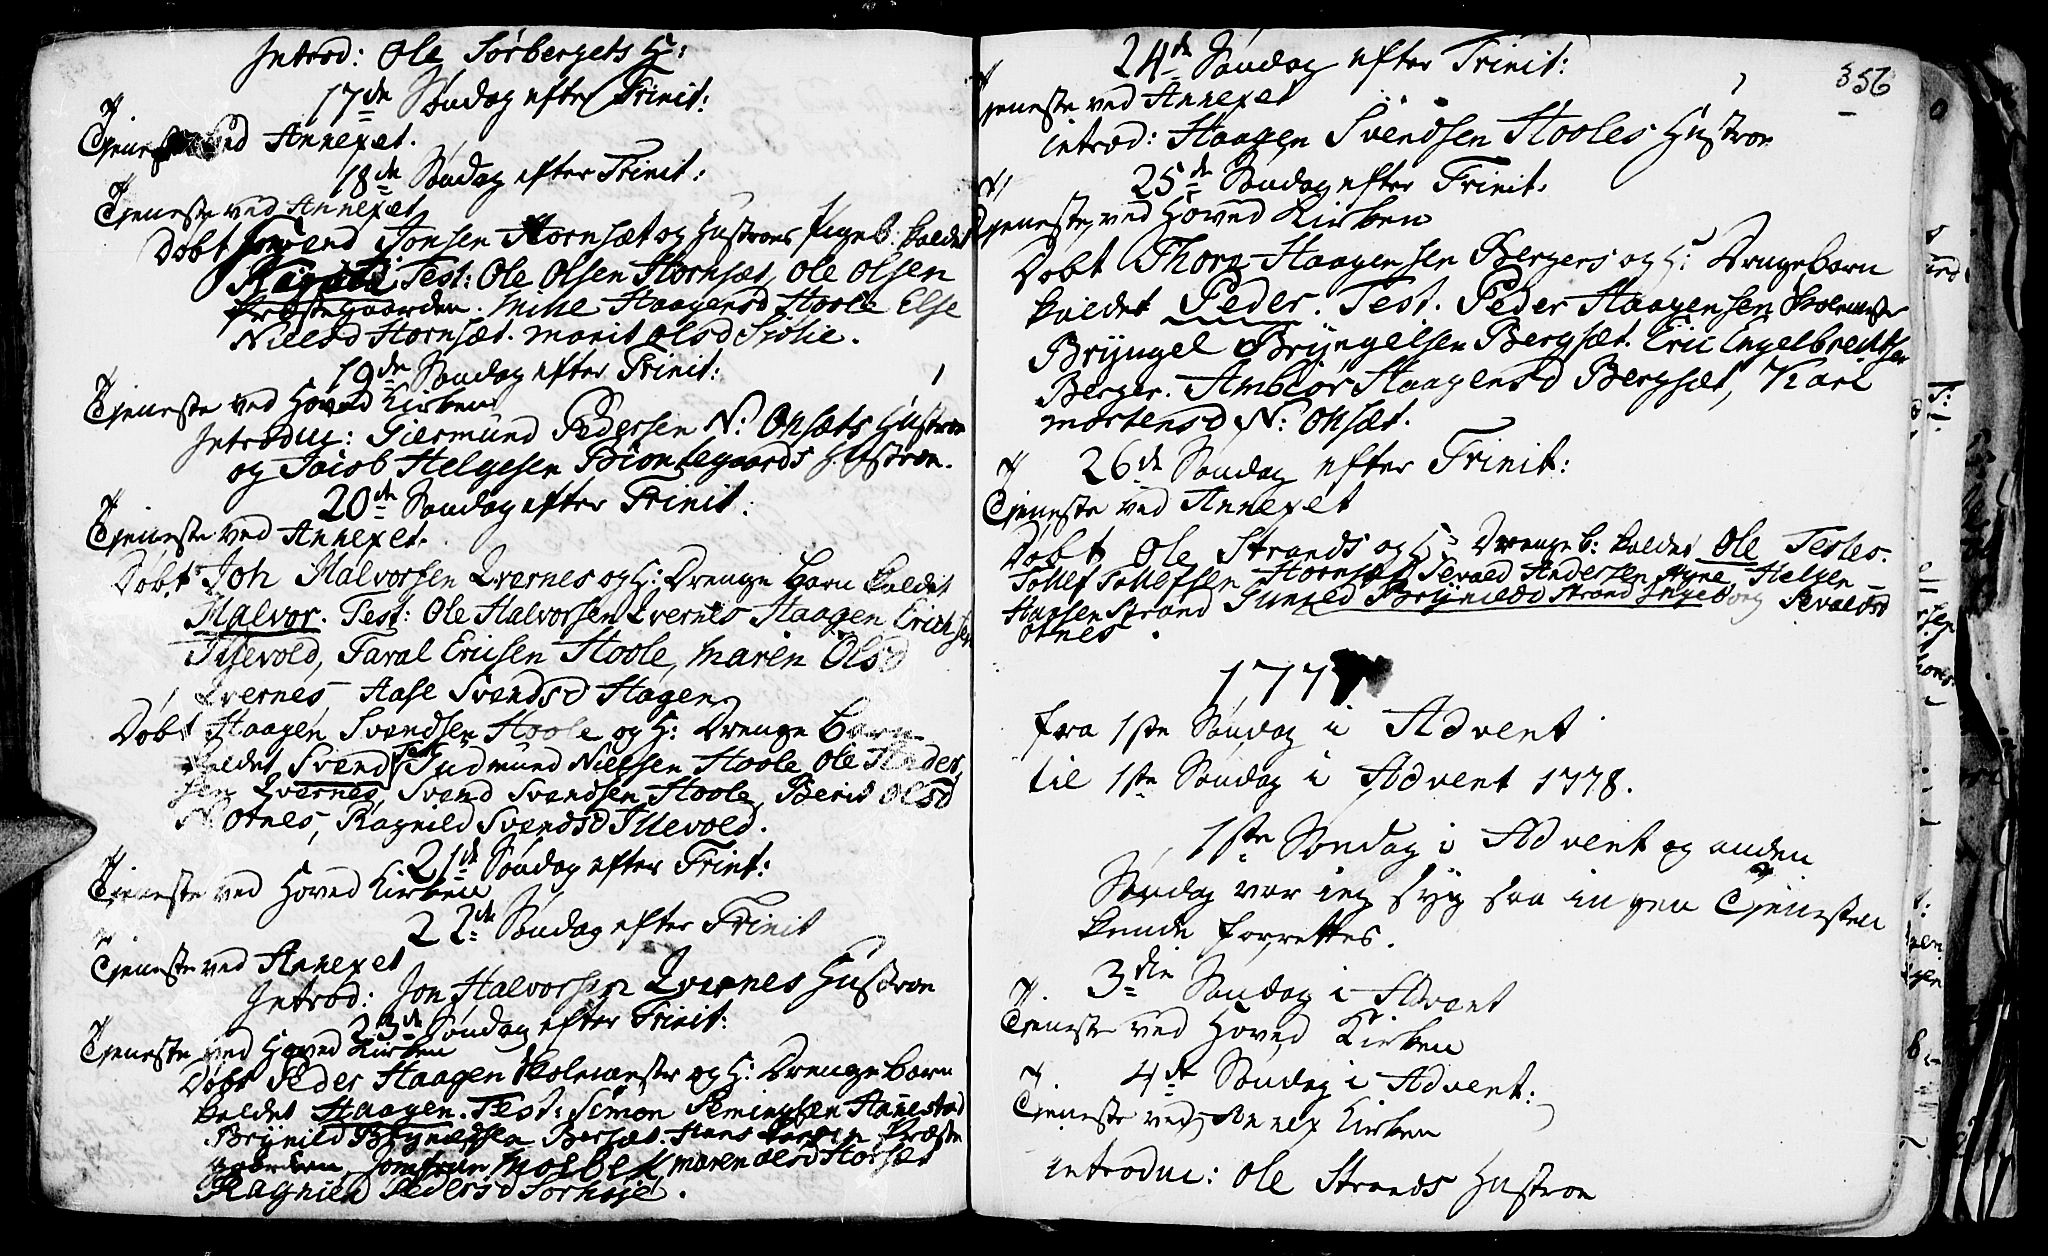 Introd: Ole Sørbergets H:
17de Søndag efter Trinit:
Tjeneste ved Annexet.
18de Søndag efter Trinit:
Tjeneste ved Annexet
Døbt Jonsen Hornsæt og Hustroes Pigeb. kaldet
Test: Ole Olsen Hornsæt, Ole Olsen
Præstegaarden. Mille Haagensd Hoole Else
Nielsd Hornsæt. Marit Olsd Siølie.
19de Søndag efter Trinit:
Tjeneste ved Hoved Kirken
Introduc: Giermund Pedersen N: Onsæts Hustroe
og Jacob Helgesen Biontegaards Hustroe.
20de Søndag efter Trinit:
Tjeneste ved Annexet.
Døbt Joh Halvorsen Qvernes og H: Drenge Barn kaldet
Halvor. Test: Ole Halvorsen Qvernes Haagen Erichsen
Tillevold, Taral Ericsen Hoole, Maren Olsd
Qvernes, Aase Svendsd Hagen
Døbt Haagen Svendsen Hoole og H: Drenge Barn
kaldet Svend Test Gudmund Nielsen Hoole Ole Halder
sen Qvernes, Svend Svendsen Hoole, Berit Olsd
N Otnes, Ragnild Svendsd Tillevold.
21de Søndag efter Trint:
Tjeneste ved Hoved Kirken
22de Søndag efter Trinit
Tjeneste ved Annexet
Introd: Jon Halvorsen Qvernes Hustroe
23de Søndag efter Trinit:
Tjeneste ved Hoved Kirken
Døbt Peder Haagen Skolemester og H: Drenge Barn
kaldet Haagen. Test: Simon Pemingsen Hanestad
Brynild Brynildsen Bersæt. Hans Præste
gaarden, Jomfrue Moebek Maren Olsd Horsæt
Ragnild Pedersd Sørhøje.
356
24de Søndag efter Trinit:
Tjeneste ved Annexet
introd: Haagen Svendsen Hooles Hustroe
25de Søndag efter Trinit.
Tjeneste ved Hoved Kirken
Døbt Thore Haagensen Bergers og H: Drengebarn
kaldet Peder. Test. Peder Haagensen Skolemester
Bryngel Bryngelsen Bergsæt. Eric Engelbrechtsen
Berger. Ambiør Haagensd Bergsæt, Kari
Mortensd N: Onsæt.
26de Søndag efter Trinit:
Tjeneste ved Annexet
Døbt Ole Strands og H: Drengeb: kaldet Ole Testes.
Tollef Tollefsen Hornsæt Sevald Andersen Helgen
Hansen Strand Gunild Brynildsd Strand Ingeborg Sevaldsd
Otnes.
1777
fra 1ste Søndag i Advent
til 1ste Søndag i Advent 1778.
1ste Søndag i Advent og anden
Søndag var jeg syg saa ingen Tjenesten
kunde forrettes.
3die Søndag i Advent
Tjeneste ved Hoved Kirken
4de Søndag i Advent:
Tjeneste ved Annex Kirken
introduc: Ole Strands Hustroe